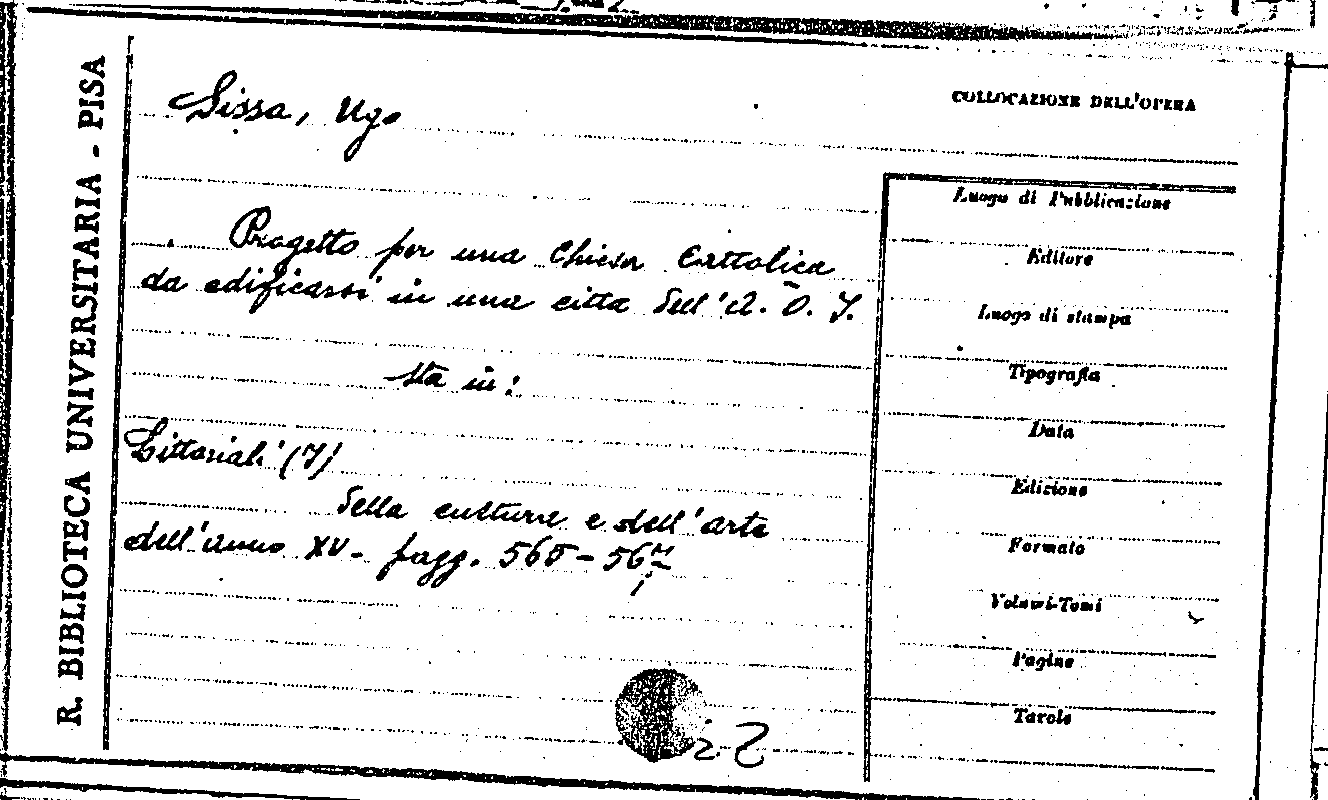 R. BIBLIOTECA UNIVERSITARIA - PISA
Sissa, Ugo
Progetto per una Chiesa Cattolica
da edificarsi in una città dell'A. O. I.
sta in:
Littoriali (I)
della cultura e dell'arte
dell'anno XV - pagg. 565-567
COLLOCAZIONE DELL'OPERA
Luogo di Pubblicazione
Editore
Luogo di stampa
Tipografia
Data
Edizione
Formato
Volumi-Tomi
Pagine
Tavole